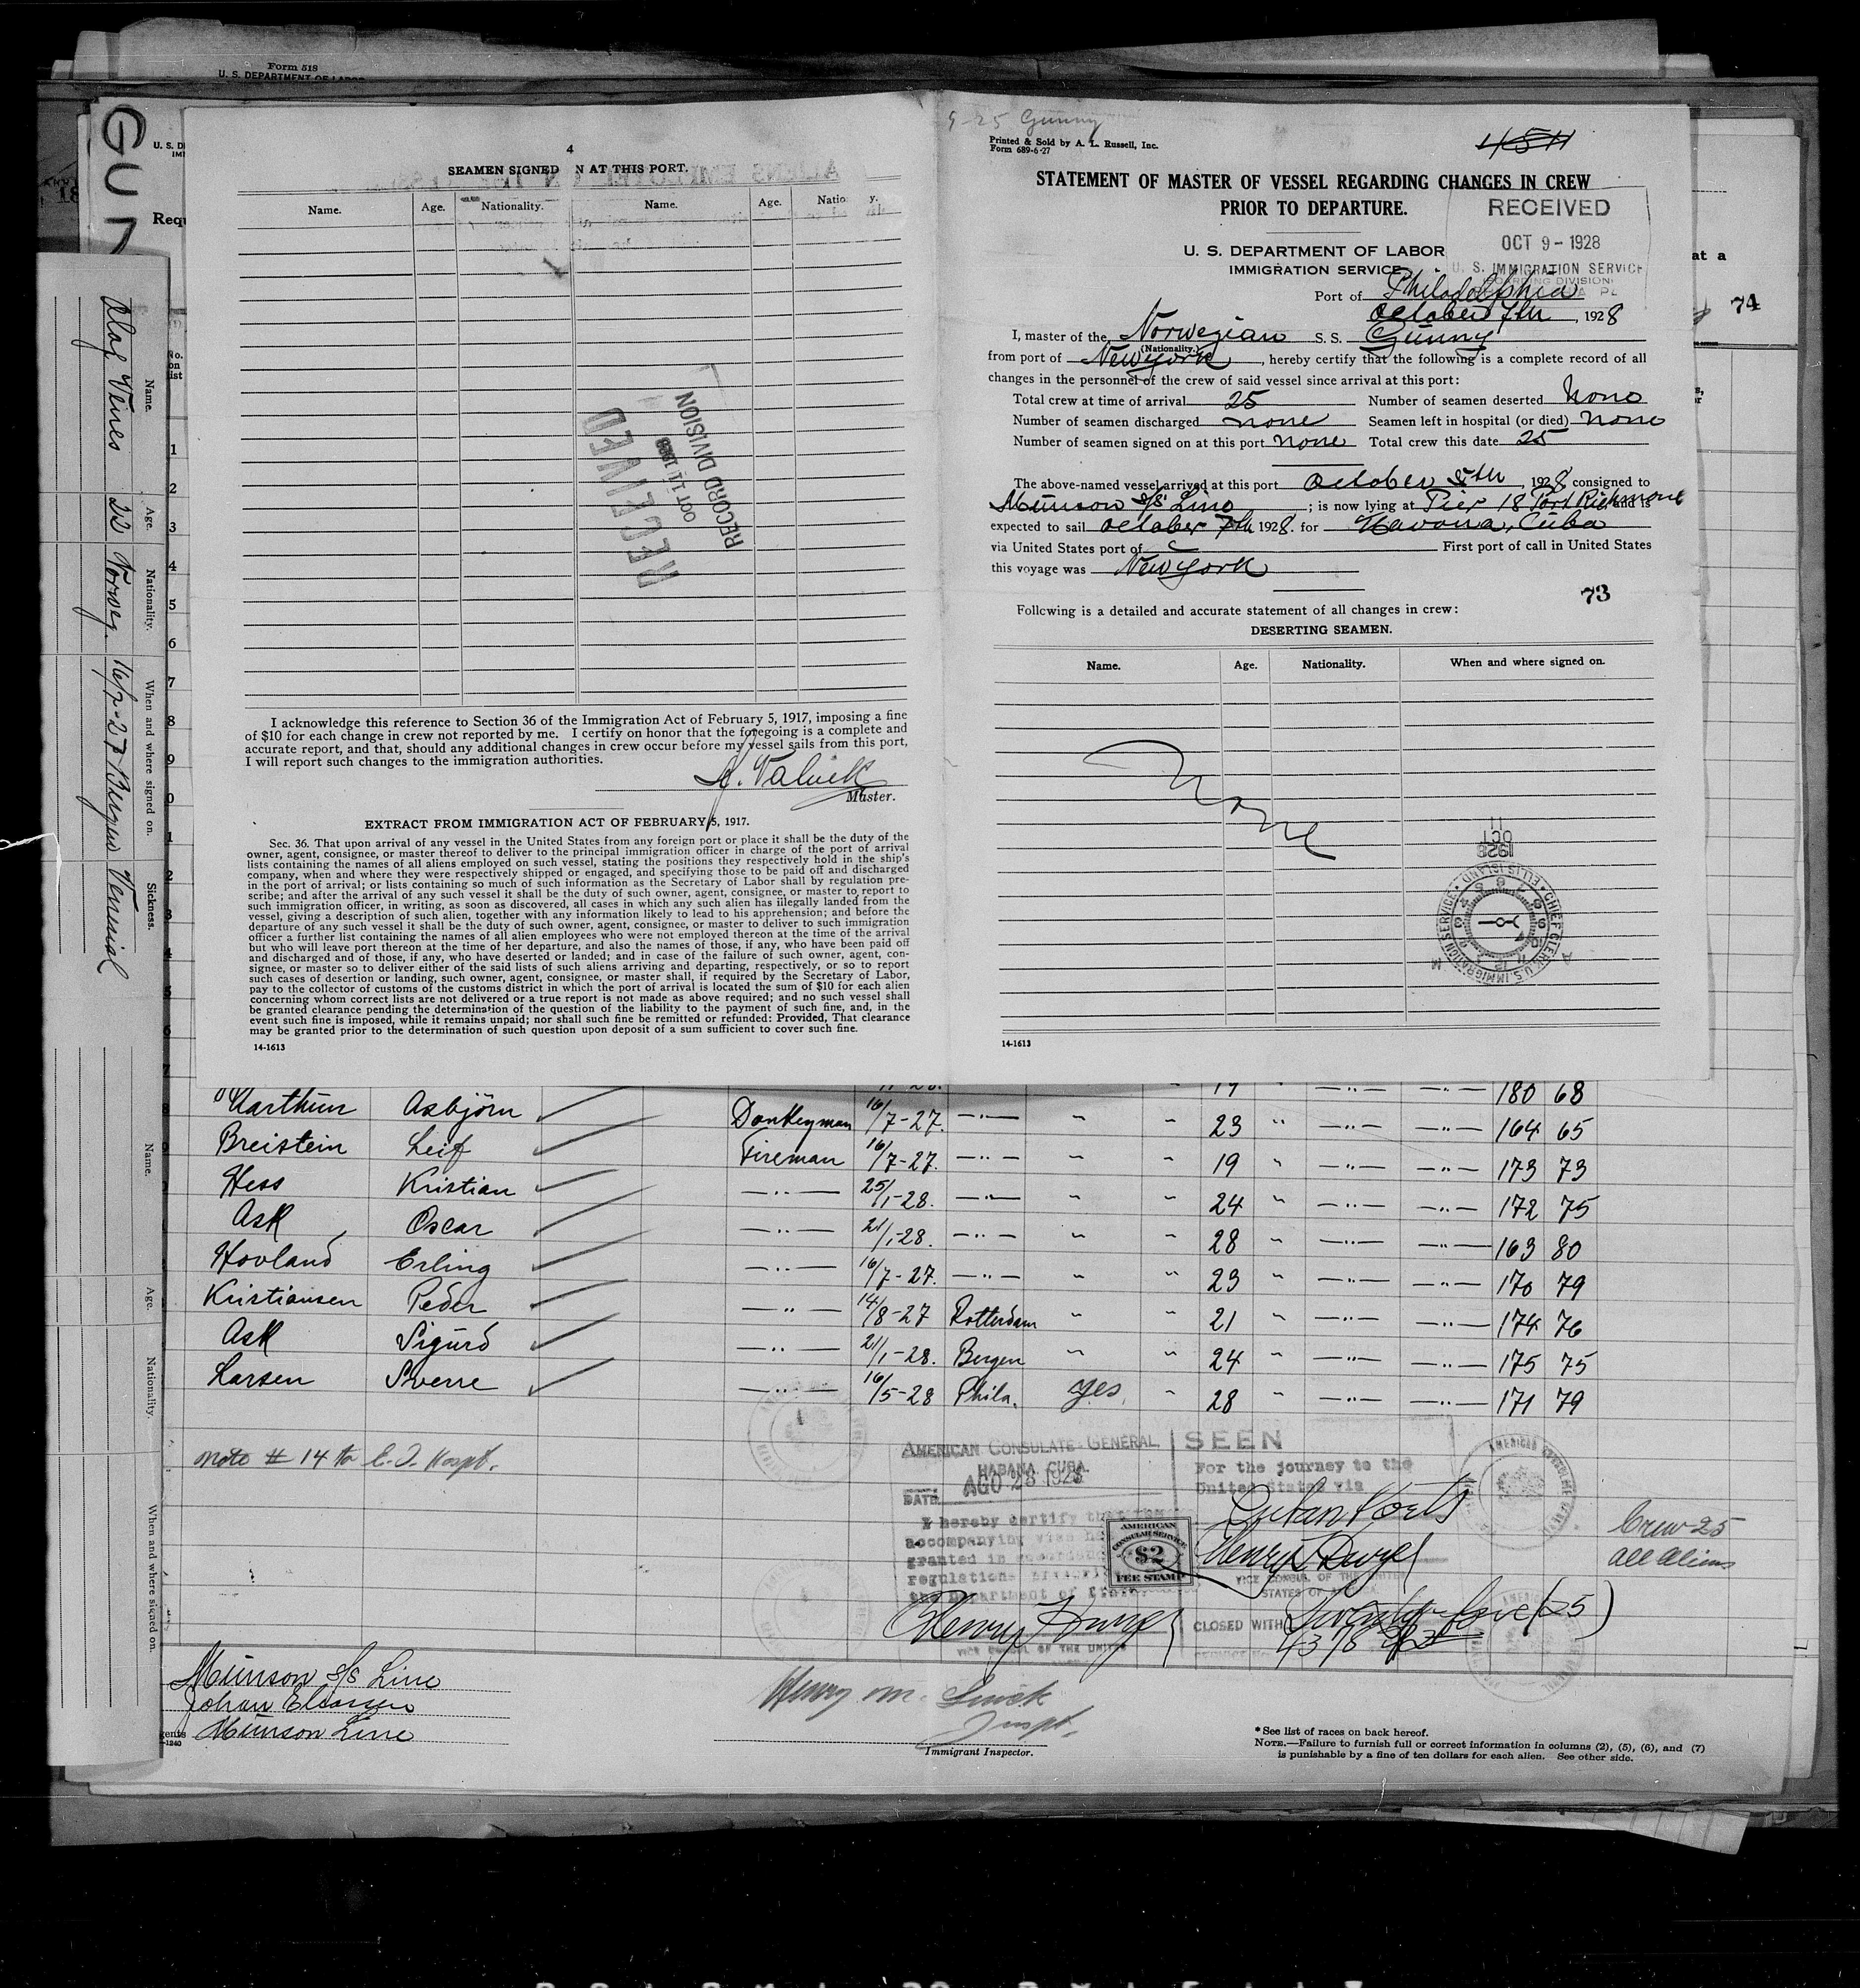 Form 518
U. S. DEPARTMENT OF LABOR
GUN
U. S. D
IM
Requ
at a
74
No.
on
list
4
SEAMEN SIGNED N AT THIS PORT.
Name. Age. Nationality. Name. Age. Natio y.
RECEIVED
OCT 11 1928
RECORD DIVISION
I acknowledge this reference to Section 36 of the Immigration Act of February 5, 1917, imposing a fine
of $10 for each change in crew not reported by me. I certify on honor that the foregoing is a complete and
accurate report, and that, should any additional changes in crew occur before my vessel sails from this port,
I will report such changes to the immigration authorities.
Master.
EXTRACT FROM IMMIGRATION ACT OF FEBRUARY 5, 1917.
Sec. 36. That upon arrival of any vessel in the United States from any foreign port or place it shall be the duty of the
owner, agent, consignee, or master thereof to deliver to the principal immigration officer in charge of the port of arrival
lists containing the names of all aliens employed on such vessel, stating the positions they respectively hold in the ship's
company, when and where they were respectively shipped or engaged, and specifying those to be paid off and discharged
in the port of arrival; or lists containing so much of such information as the Secretary of Labor shall by regulation pre-
scribe; and after the arrival of any such vessel it shall be the duty of such owner, agent, consignee, or master to report to
such immigration officer, in writing, as soon as discovered, all cases in which any such alien has illegally landed from the
vessel, giving a description of such alien, together with any information likely to lead to his apprehension; and before the
departure of any such vessel it shall be the duty of such owner, agent, consignee, or master to deliver to such immigration
officer a further list containing the names of all alien employees who were not employed thereon at the time of the arrival
but who will leave port thereon at the time of her departure, and also the names of those, if any, who have been paid off
and discharged and of those, if any, who have deserted or landed; and in case of the failure of such owner, agent, con-
signee, or master so to deliver either of the said lists of such aliens arriving and departing, respectively, or so to report
such cases of desertion or landing, such owner, agent, consignee, or master shall, if required by the Secretary of Labor,
pay to the collector of customs of the customs district in which the port of arrival is located the sum of $10 for each alien
concerning whom correct lists are not delivered or a true report is not made as above required; and no such vessel shall
be granted clearance pending the determination of the question of the liability to the payment of such fine, and, in the
event such fine is imposed, while it remains unpaid; nor shall such fine be remitted or refunded: Provided, That clearance
may be granted prior to the determination of such question upon deposit of a sum sufficient to cover such fine.
14-1613
9-25 Gunny
Printed & Sold by A. L. Russell, Inc.
Form 689-6-27
STATEMENT OF MASTER OF VESSEL REGARDING CHANGES IN CREW
PRIOR TO DEPARTURE.
RECEIVED
OCT 9 - 1928
U. S. IMMIGRATION SERVICE
U. S. DEPARTMENT OF LABOR
IMMIGRATION SERVICE
Port of Philadelphia
October 7th, 1928
I, master of the Norwegian S. S. Gunny
(Nationality.)
from port of New York, hereby certify that the following is a complete record of all
changes in the personnel of the crew of said vessel since arrival at this port:
Total crew at time of arrival 25 Number of seamen deserted None
Number of seamen discharged none Seamen left in hospital (or died) none
Number of seamen signed on at this port none Total crew this date 25
The above-named vessel arrived at this port October 5th, 1928 consigned to
Munson S/S Line; is now lying at Pier 18 Port Richmond and is
expected to sail October 7th 1928. for Havana, Cuba
via United States port of First port of call in United States
this voyage was New York
73
Following is a detailed and accurate statement of all changes in crew:
DESERTING SEAMEN.
Name. Age. Nationality. When and where signed on.
None
1928
OCT
11
CHIEF CLERK U.S. IMMIGRATION SERVICE ELLIS ISLAND
14-1613
Name. Age. Nationality. When and where signed on. Sickness.
Olaf Veines 22 Norweg. 16/7-27 Bergen Venerial
Name. Age. Nationality. When and where signed on.
17 " —"— —"— 180 68
Marthun Asbjörn Donkeyman 16/7-27. —"— " " 23 " —"— —"— 164 65
Breistein Leif Fireman 16/7-27. —"— " " 19 " —"— —"— 173 73
Hess Kristian —"— 25/1-28. —"— " " 24 " —"— —"— 172 75
Ask Oscar —"— 21/1-28. —"— " " 28 " —"— —"— 163 80
Hovland Erling —"— 16/7-27. —"— " " 23 " —"— —"— 170 79
Kristiansen Peder —"— 14/8-27 Rotterdam " " 21 " —"— —"— 174 76
Ask Sigurd —"— 21/1-28. Bergen " " 24 " —"— —"— 175 75
Larsen Sverre —"— 16/5-28 Phila. yes " 28 " —"— —"— 171 79
Note # 14 to E. I. Hospt.
AMERICAN CONSULATE-GENERAL
HABANA, CUBA.
DATE AGO 28 1928
I hereby certify that the
accompanying visa
granted in
regulations
the Department of State
SEEN
For the journey to the
United States via
AMERICAN
CONSULAR SERVICE
$2
FEE STAMP
VICE CONSUL OF THE UNITED
STATES OF AMERICA
CLOSED WITH Twenty-five (25)
VICE CONSUL OF THE UNITED
Crew 25
All Aliens
Munson S/S Line
Munson Line
Inspt.
Immigrant Inspector.
* See list of races on back hereof.
NOTE.—Failure to furnish full or correct information in columns (2), (5), (6), and (7)
is punishable by a fine of ten dollars for each alien. See other side.